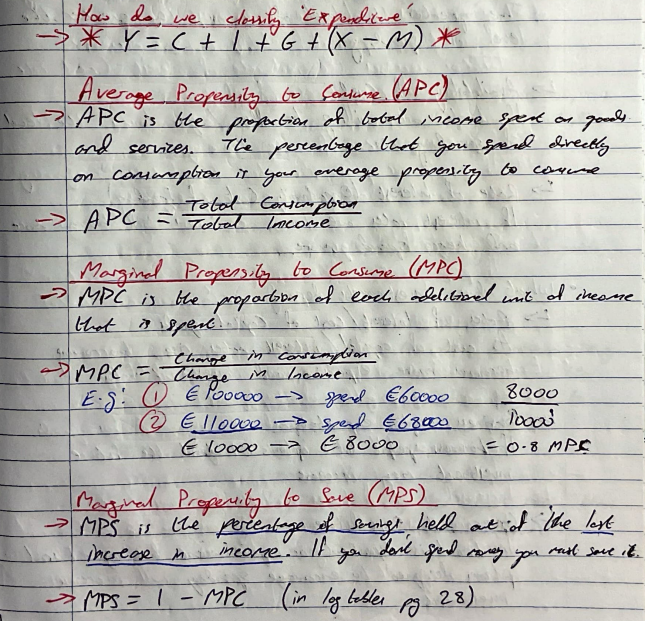 How do we classify 'Expenditure'
→ * Y = C + I + G + (X - M) *
Average Propensity to Consume (APC)
→ APC is the proportion of total income spent on goods
and services. The percentage that you spend directly
on consumption is your average propensity to consume
→ APC = Total Consumption / Total Income
Marginal Propensity to Consume (MPC)
→ MPC is the proportion of each additional unit of income
that is spent.
→ MPC = Change in consumption / Change in Income
E.g: ① €100000 → spend €60000 8000
② €110000 → spend €68000 10000
€10000 → €8000 = 0.8 MPC
Marginal Propensity to Save (MPS)
→ MPS is the percentage of savings held out of the last
increase in income. If you don't spend money you must save it.
→ MPS = 1 - MPC (in log tables pg 28)